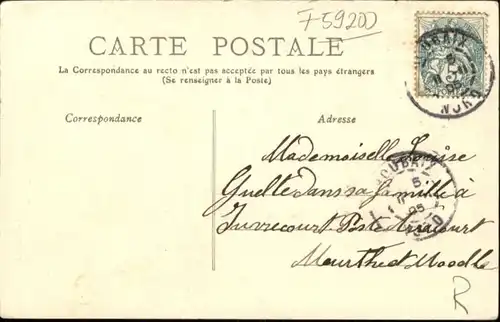 F59200
CARTE POSTALE
La Correspondance au recto n'est pas acceptée par tous les pays étrangers
(Se renseigner à la Poste)
Correspondance
Adresse
ROUBAIX
NORD
Mademoiselle Louise
Guelle dans sa famille à
Juvrecourt Poste Arracourt
Meurthe et Moselle
ROUBAIX
R